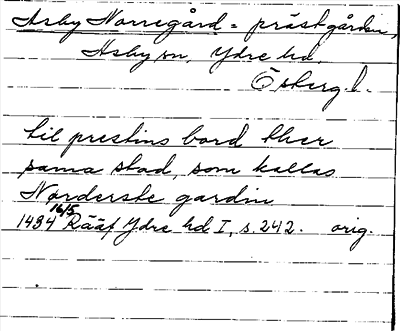 Asby Norregård = prästgården,
Asby sn, Ydre hd,
Österg. l.
til prestins bord ther
sama stad, som kallas
Nørderste gardin
1494 16/5 Rääf Ydre hd I, s. 242. orig.